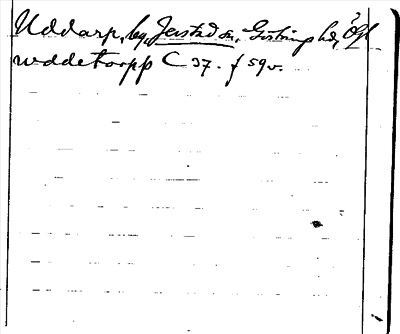 Uddarp, by, Jerstad sn, Göstrings hd, Ögl
uddetorpp C 37. f 59v.